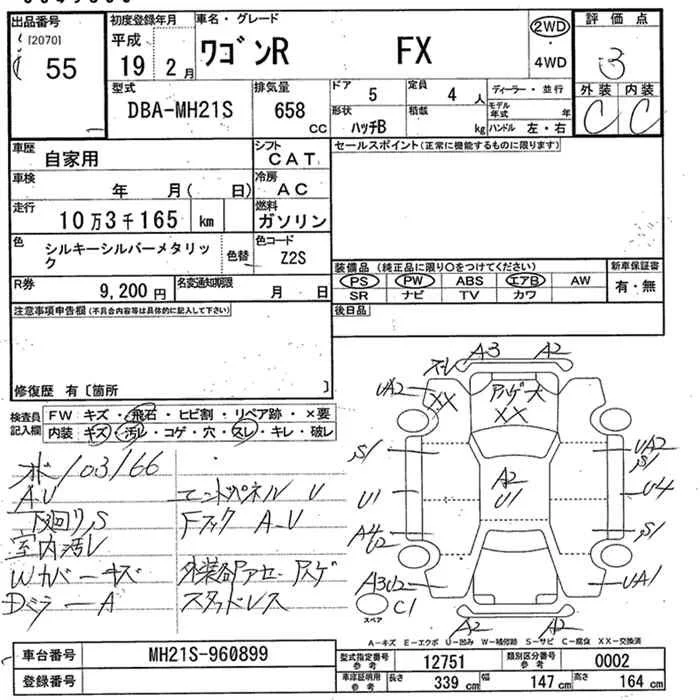 出品番号
[2070]
55
初度登録年月
平成
19 2月
車名・グレード
ワゴンR FX
2WD
・
4WD
評価点
3
外装 内装
C C
型式
DBA-MH21S
排気量
658 cc
ドア 5
定員 4 人
形状 ハッチB
積載 kg
ディーラー・並行
モデル年式 年
ハンドル 左・右
車歴 自家用
シフト CAT
車検 年 月( 日)
冷房 AC
走行 10万3千165 km
燃料 ガソリン
色 シルキーシルバーメタリック
色替
色コード Z2S
R券 9,200円
名変通知期限 月 日
セールスポイント(正常に機能するものに限ります)
装備品(純正品に限り○をつけてください)
PS PW ABS エアB AW
SR ナビ TV カワ
新車保証書
有・無
後日品
注意事項申告欄(不具合内容等は具体的に記入して下さい)
修復歴 有〔箇所 〕
検査員記入欄
FW キズ・飛石・ヒビ割・リペア跡・×要
内装 キズ・汚レ・コゲ・穴・スレ・キレ・破レ
ホ/103166
A.U
下廻りS
室内汚レ
Wカバーキズ
DミラーA
エンドパネル U
Fフック A-U
スタッドレス
A3 A2
スレ
UA2
XX
アハゲ大
XX
S1
U1
A4
U2
A3U2
A2
U1
UA2
S1
U4
S1
UA1
C1
スペア
A2 A2
A-キズ E-エクボ U-凹み W-補修跡 S-サビ C-腐食 XX-交換済
車台番号 MH21S-960899
登録番号
型式指定番号 参考 12751
類別区分番号 参考 0002
車庫証明用 参考 長さ 339 cm 幅 147 cm 高さ 164 cm